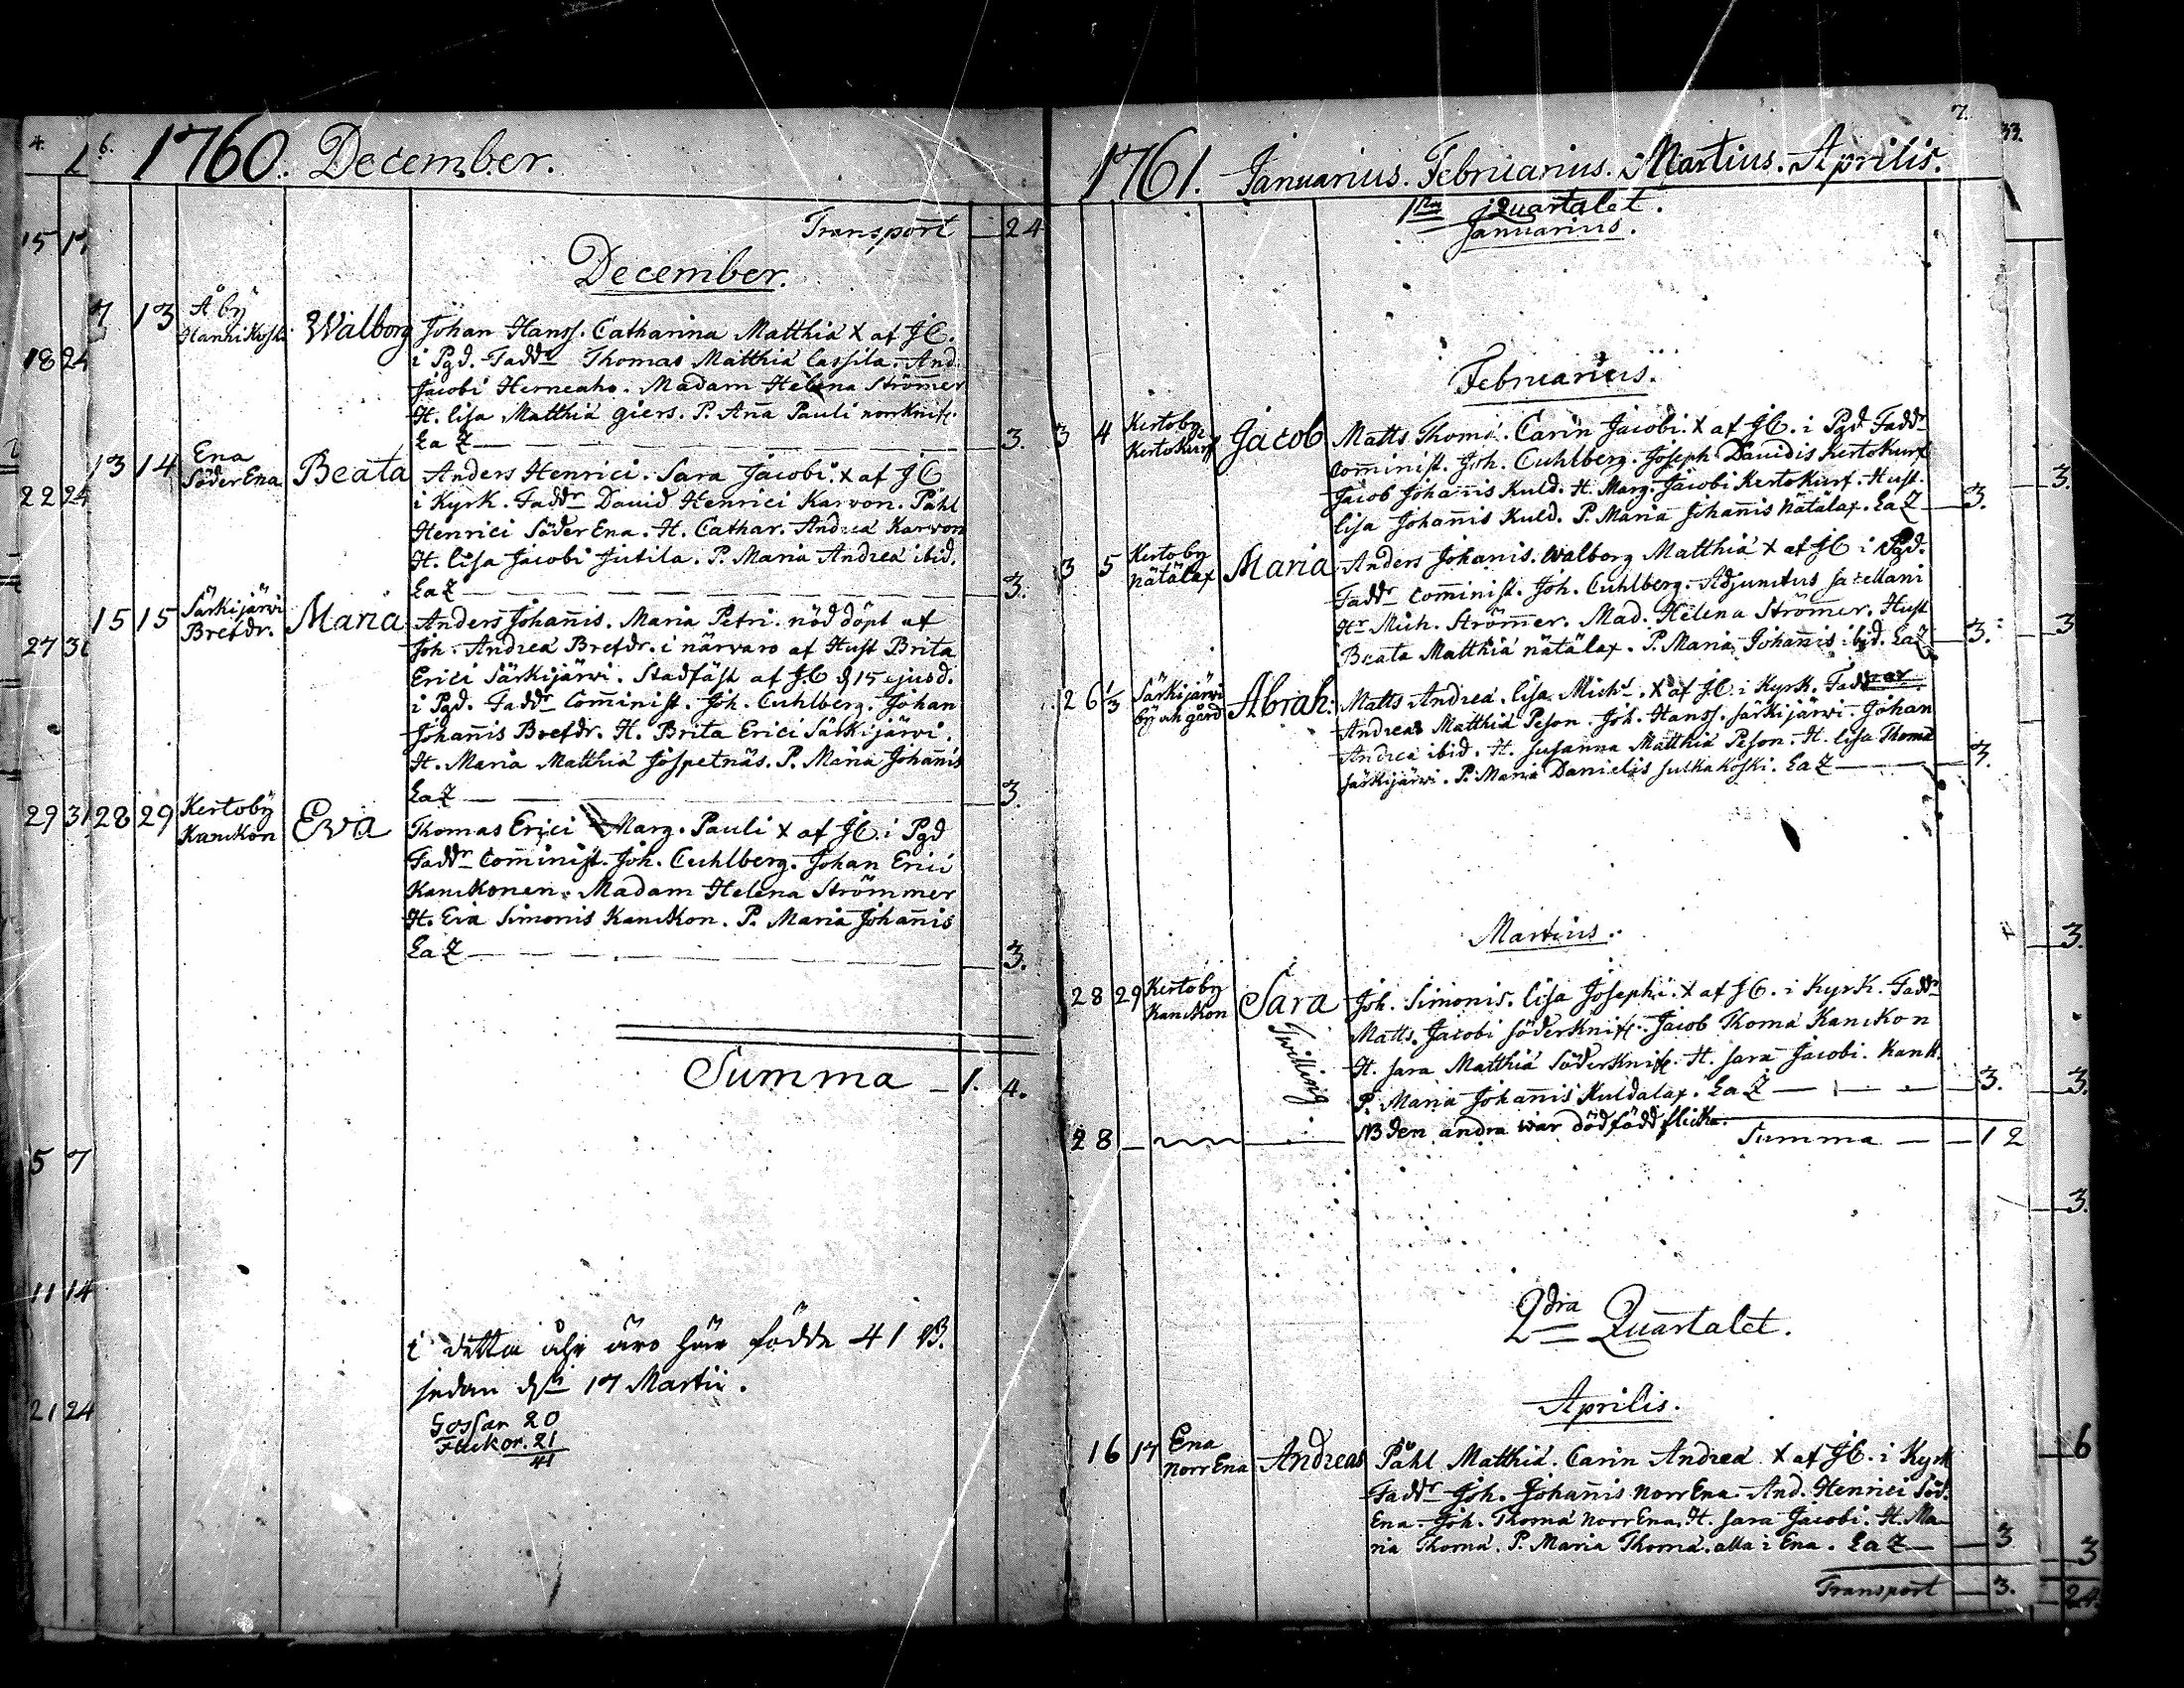 6.
1760. December.
Transport 24
December.
7 13 Åby Walborg Johan Hanss. Catharina Matthiæ x af JC.
Hanhikoski i Pgd. Faddr Thomas Matthiæ Cassila. And.
Jacobi Herneaho. Madam Helena Strömmer
H. Lisa Matthiæ giers. P. Aña Pauli norrknif.
La Z 3.
13 14 Ena Beata Anders Henrici. Sara Jacobi. x af JC
Söder Ena i Kyrk. Faddr David Henrici Karvon. Påhl
Henrici Söder Ena. H. Cathar. Andreæ Karvon
H. Lisa Jacobi Jutila. P. Maria Andreæ ibid.
La Z 3.
15 15 Särkijärvi Maria Anders Johañis. Maria Petri. nöd döpt af
Brefdr. Joh. Andreæ Brefdr. i närvaro af Hust Brita
Erici Särkijärvi. Stadfäst af JC d 15 ejusd.
i Pgd. Faddr Com̃inist. Joh. Cuhlberg. Johan
Johañis Brefdr. H. Brita Erici Särkijärvi.
H. Maria Matthiæ Jospetnäs. P. Maria Johañis
La Z 3.
28 29 Kertoby Eva Thomas Erici Marg. Pauli x af JC. i Pgd
Kanckon Faddr Com̃inist. Joh. Cuhlberg. Johan Erici
Kanckonen. Madam Helena Strömmer
H. Eva Simonis Kanckon. P. Maria Johañis
La Z 3.
Summa 1. 4.
i detta åhr äro här födde 41 B.
sedan den 17 Martii.
Gossar 20
Flickor. 21
41
7.
1761. Januarius. Februarius. Martius. Aprilis.
1sta Quartalet.
Januarius.
Februarius.
3 4 Kertoby Jacob Matts Thomæ. Carin Jacobi. x af JC. i Pgd Faddr
Kertokurf Com̃inist. Joh. Cuhlberg. Joseph Davidis Kertokurf
Jacob Johañis Kuld. H. Marg. Jacobi Kertokurf. Hust.
Lisa Johañis Kuld. P. Maria Johañis Nätälax. La Z 3.
3 5 Kertoby Maria Anders Johanis. Walborg Matthiæ x af JC i Pgd.
Nätälax Faddr Com̃inist. Joh. Cuhlberg. Adjunctus Sacellani
Hr Mich. Strömmer. Mad. Helena Strömer. Hust
Beata Matthiæ nätälax. P. Maria Johañis ibid. La Z 3.
26 1/3 Särkijärvi Abrah: Matts Andreæ. Lisa Michs. x af JC. i Kyrk. Faddrar.
by oh gård Andreas Matthiæ Peson. Joh. Hanss. Särkijärvi. Johan
Andreæ ibid. H. Susanna Matthiæ Peson. H. Lisa Thomæ
Särkijärvi. P. Maria Danielis Sulkakoski. La Z 3.
Martius.
28 29 Kertoby Sara Joh. Simonis. Lisa Josephi. x af JC. i Kyrk. Faddr
Kanckon Twilling Matts. Jacobi Söderknif. Jacob Thomæ Kanckon
H. Sara Matthiæ Söderknif. H. Sara Jacobi. Kank.
P. Maria Johañis Kuldalax. La Z 3.
28 NB den andra war dödfödd flicka.
Summa 12
2dra Quartalet.
Aprilis.
16 17 Ena Andreas Påhl Matthiæ. Carin Andreæ x af JC. i Kyrk
Norr Ena Faddr Joh. Johañis Norr Ena. And. Henrici Söd.
Ena. Joh. Thomæ Norr Ena. H. Sara Jacobi. H. Ma-
ria Thomæ. P. Maria Thomæ. alla i Ena. La Z 3
Transport 3.